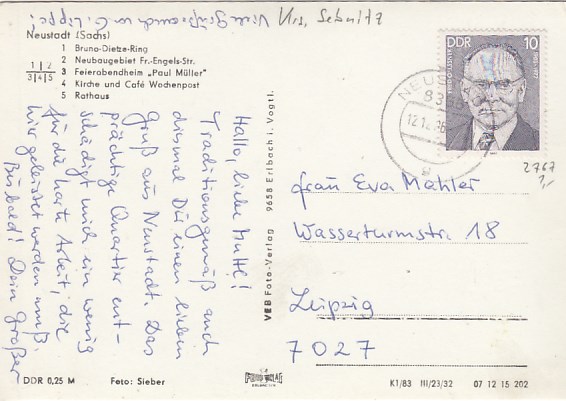 Viele Grüße auch von G. Lippe!
Krs. Sebnitz
Neustadt (Sachs)
1 Bruno-Dietze-Ring
2 Neubaugebiet Fr.-Engels-Str.
3 Feierabendheim „Paul Müller"
4 Kirche und Café Wochenpost
5 Rathaus
1 | 2
3|4|5
Hallo, liebe Mutti!
Traditionsgemäß auch
diesmal Dir einen lieben
Gruß aus Neustadt. Das
prächtige Quartier ent-
schädigt mich ein wenig
für die harte Arbeit, die
hier geleistet werden muß.
Bis bald! Dein Großer
DDR 0,25 M
Foto: Sieber
VEB Foto-Verlag 9658 Erlbach i. Vogtl.
DDR 10
NEUSTADT
8355
12.12.86
g
2767
1,-
Frau Eva Mahler
Wasserturmstr. 18
Leipzig
7027
K1/83 III/23/32 07 12 15 202